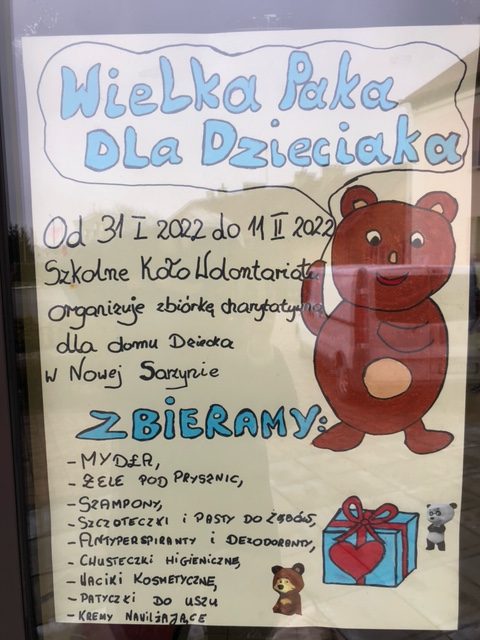 Wielka Paka
Dla Dzieciaka
Od 31 I 2022 do 11 II 2022
Szkolne Koło Wolontariatu
organizuje zbiórkę charytatywną
dla domu Dziecka
w Nowej Sarzynie
ZBIERAMY:
- MYDŁA,
- ŻELE POD PRYSZNIC,
- SZAMPONY,
- SZCZOTECZKI i PASTY DO ZĘBÓW,
- ANTYPERSPIRANTY i DEZODORANTY,
- CHUSTECZKI HIGIENICZNE,
- WACIKI KOSMETYCZNE,
- PATYCZKI DO USZU
- KREMY NAWILŻAJĄCE